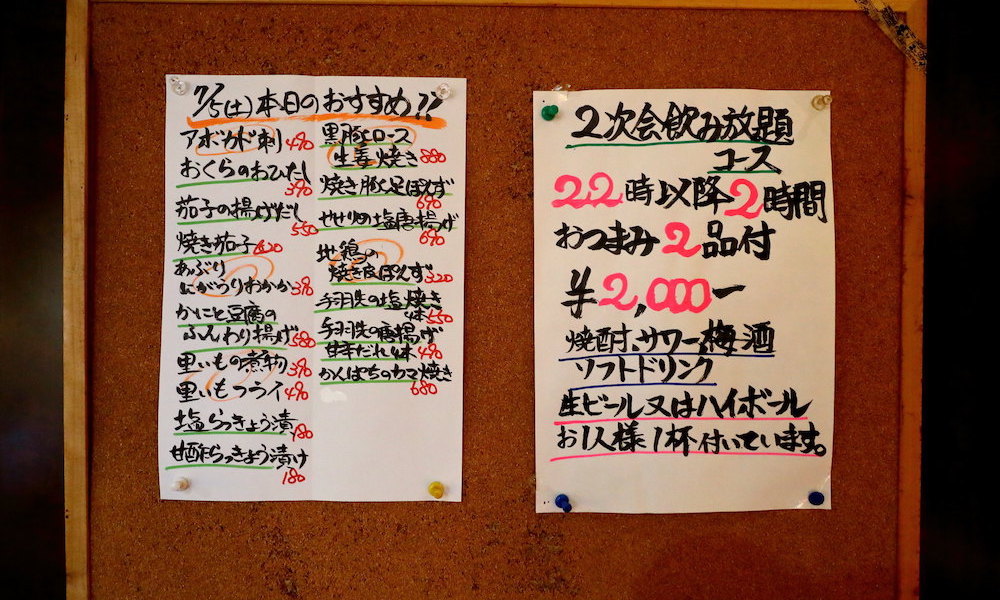 7/5(土)本日のおすすめ!!
アボカド刺 490
おくらのおひたし
390
茄子の揚げだし
550
焼き茄子
あぶり
にがうりわかか 390
かにと豆腐の
ふんわり揚げ 580
里いもの煮物 390
里いもフライ 490
塩らっきょう漬
180
甘酢らっきょう漬け
180
黒豚ロース
生姜焼き 880
焼き豚足ぽんず
690
せせりの塩唐揚げ
690
地鶏の
焼き皮ぽんず 320
手羽先の塩焼き
4本 550
手羽先の唐揚げ
甘辛だれ 4本 490
かんぱちのカマ焼き
680
2次会飲み放題
コース
22時以降2時間
おつまみ2品付
¥2,000ー
焼酎、サワー、梅酒
ソフトドリンク
生ビール又はハイボール
お1人様1杯付いています。